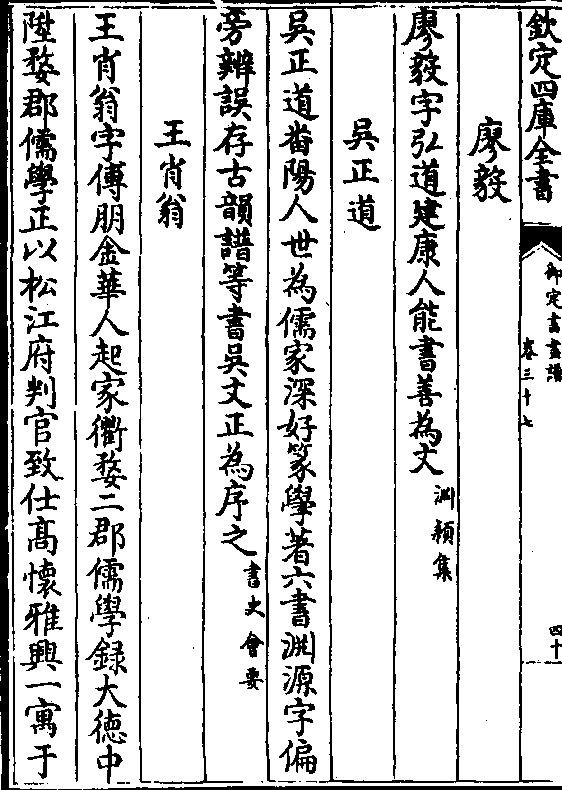 欽定四庫全書
御定書畫譜
卷三十七
四十
廖毅
廖毅字弘道建康人能書善為文淵穎集
吳正道
吳正道番陽人世為儒家深好篆學著六書淵源字偏
旁辨誤存古韻譜等書吳文正為序之書史會要
王肖翁
王肖翁字傅朋金華人起家衢婺二郡儒學錄大德中
陞婺郡儒學正以松江府判官致仕高懷雅興一寓于